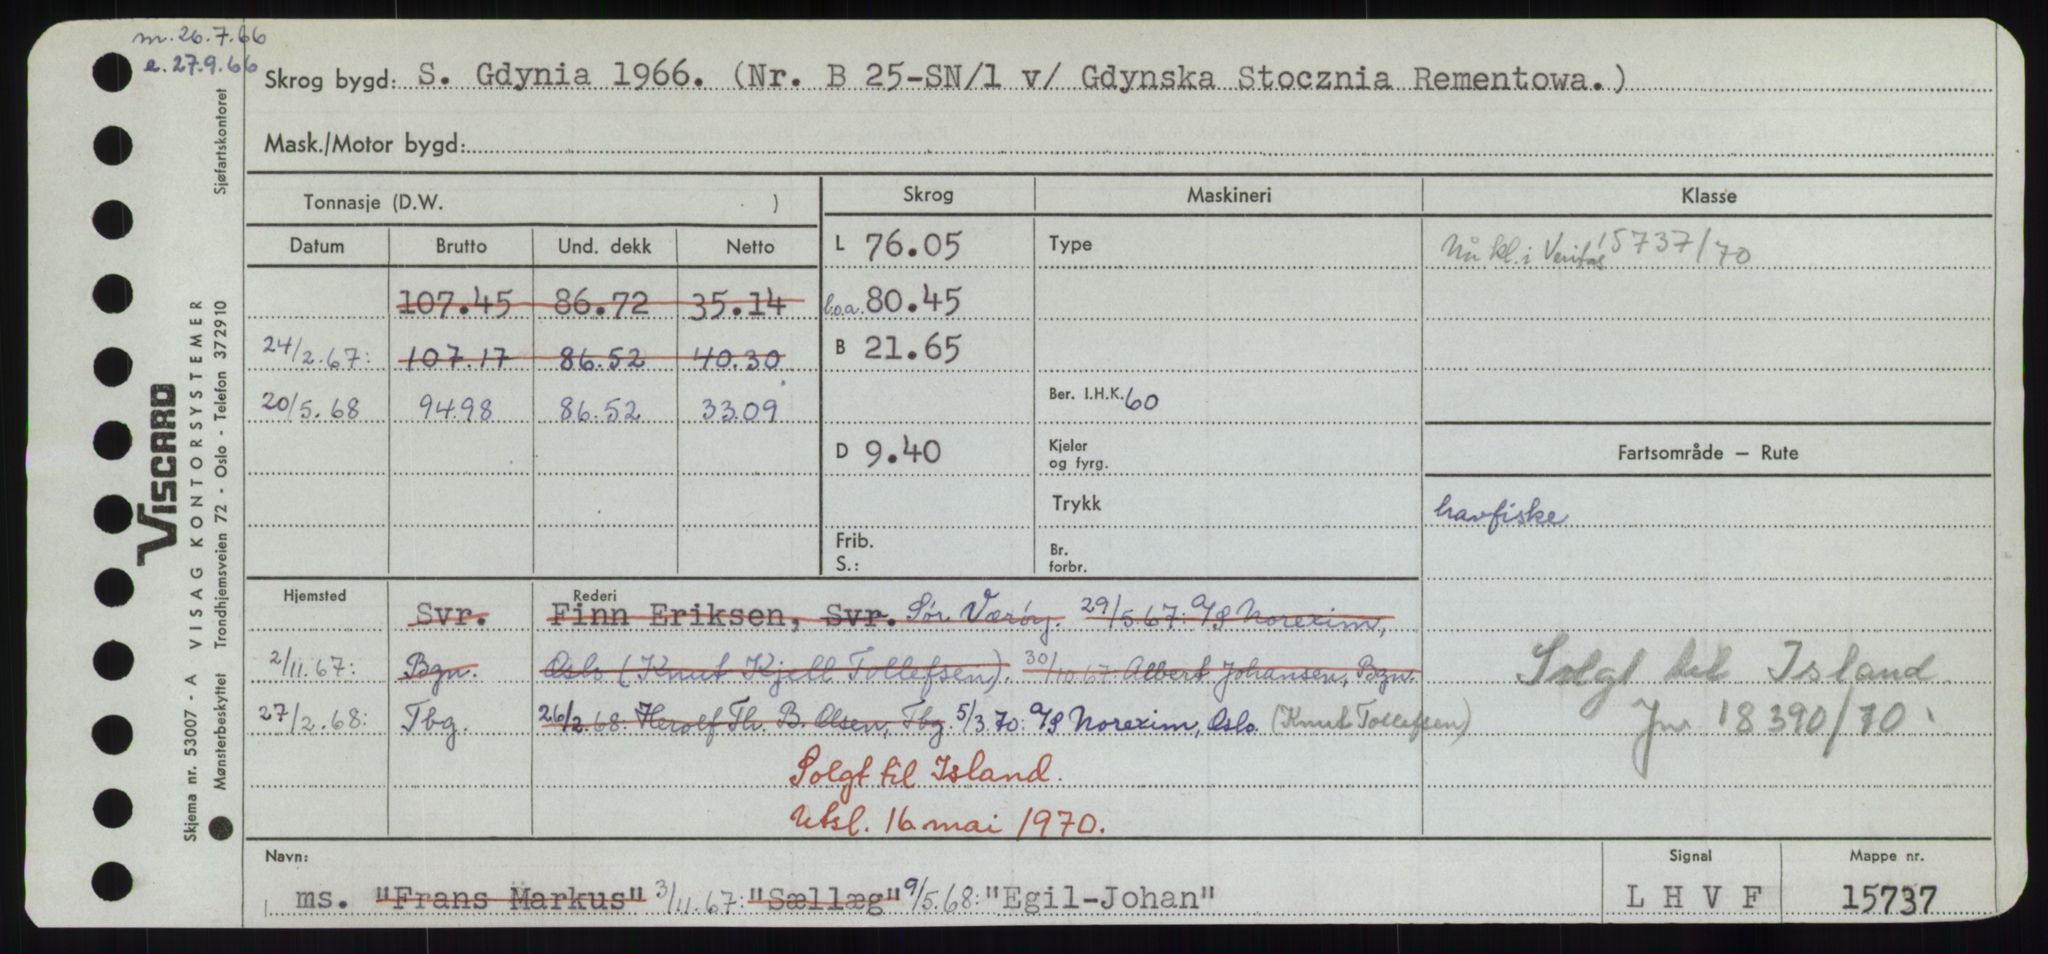 m. 26.7.66
e. 27.9.66
Skrog bygd: S. Gdynia 1966. (Nr. B 25-SN/1 v/ Gdynska Stocznia Rementowa.)
Mask./Motor bygd:
Tonnasje (D.W. )
Skrog
Maskineri
Klasse
Datum Brutto Und. dekk Netto
L 76.05
Type
Nu kl. i Veritas 15737/70
107.45 86.72 35.14
l.o.a. 80.45
24/2.67: 107.17 86.52 40.30
B 21.65
20/5.68 94.98 86.52 33.09
Ber. I.H.K. 60
D 9.40
Kjeler
og fyrg.
Fartsområde — Rute
Trykk
havfiske
Frib.
S.:
Br.
forbr.
Hjemsted
Rederi
Svr. Finn Eriksen, Svr. Sør Værøy. 29/5.67: A/S Norexim,
2/11.67: Bgn. Oslo (Knut Kjell Tollefsen). 30/10.67: Albert Johansen, Bgn.
Solgt til Island
27/2.68: Tbg. 26/2.68: Herolf Th. B. Olsen, Tbg. 5/3.70: A/S Norexim, Oslo. (Knut Tollefsen)
Jnr 18390/70
Solgt til Island.
Utsl. 16 mai 1970.
Navn:
Signal
Mappe nr.
ms. "Frans Markus" 3/11.67: "Sællæg" 9/5.68: "Egil-Johan"
L H V F
15737
VISCARD
VISAG KONTORSYSTEMER
Sjøfartskontoret
Trondhjemsveien 72 - Oslo - Telefon 372910
Skjema nr. 53007 - A
Mønsterbeskyttet